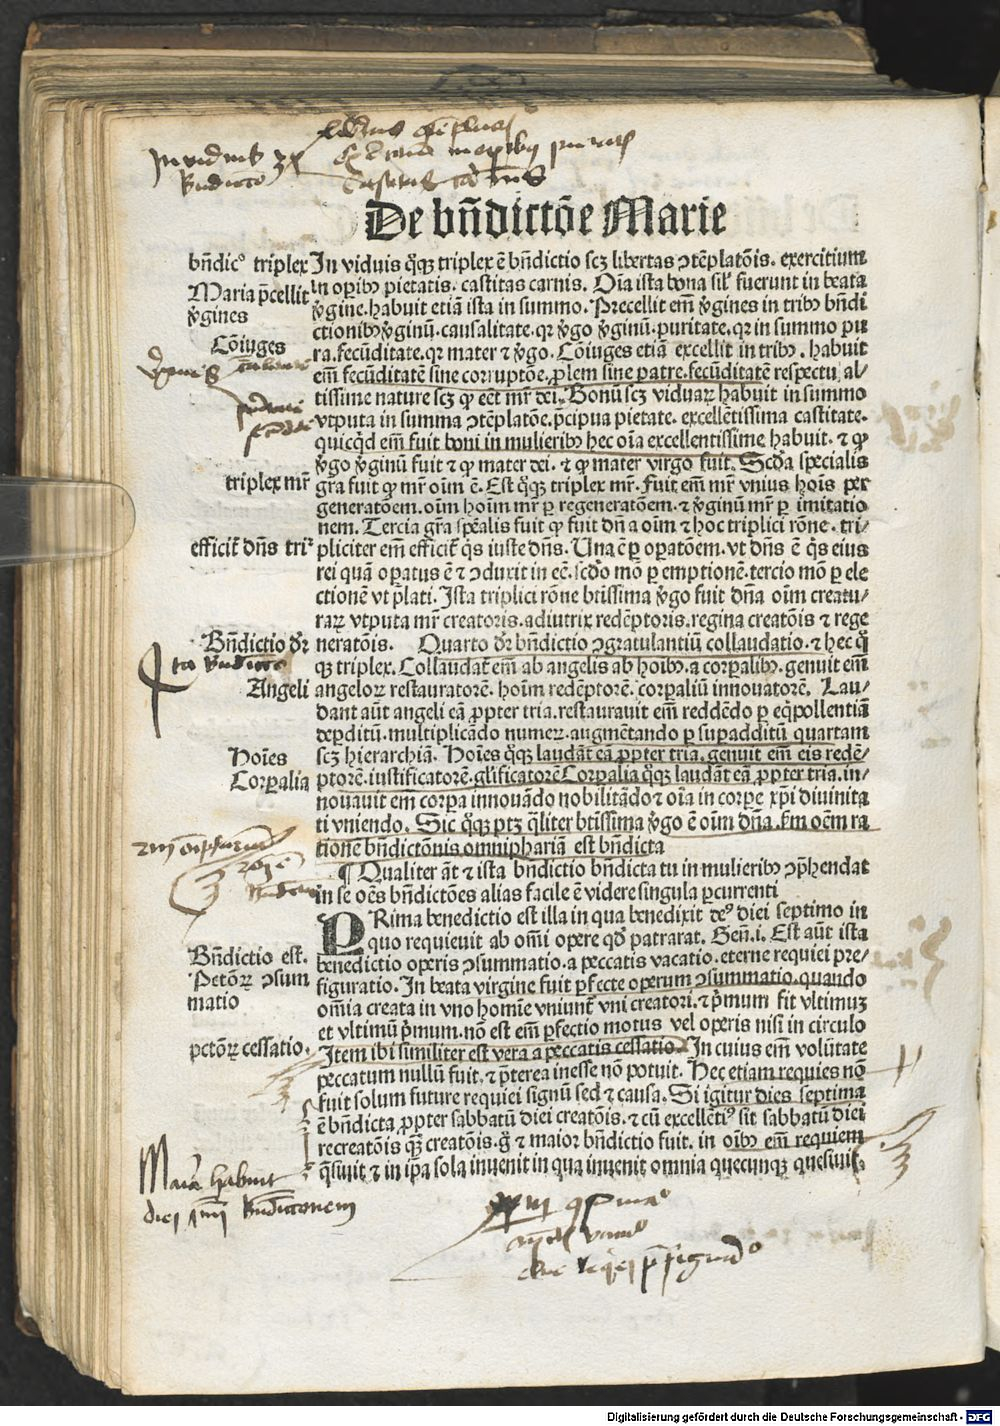 De bn̄dictōe Marie
bn̄dicꝰ triplex
Maria p̄cellit
v̄gines
Cōiuges
triplex mr̄
efficit̄ dn̄s tri
Bn̄dictio dr̄
Angeli
Hoīes
Corꝑalia
Bn̄dictio est.
Pctōꝝ ↄsum
matio
pctōꝝ cessatio.
In viduis q̄qꝫ triplex ē bn̄dictio scꝫ libertas ↄtēplatōis. exercitium
in oꝑibꝫ pietatis. castitas carnis. Oīa ista bona sil̄ fuerunt in beata
v̄gine. habuit etiā ista in summo. Precellit em̄ v̄gines in tribꝫ bn̄di
ctionibꝫ v̄ginū. causalitate. qꝛ v̄go v̄ginū. puritate. qꝛ in summo pu
ra. fecūditate. qꝛ mater ⁊ v̄go. Cōiuges etiā excellit in tribꝫ. habuit
em̄ fecūditatē sine corruptōe. ꝓlem sine patre. fecūditatē respectu al/
tissime nature scꝫ ꝙ eēt mr̄ dei. Bonū scꝫ viduaꝝ habuit in summo
vtputa in summa ↄtēplatōe. p̄cipua pietate. excellētissima castitate.
quicq̄d em̄ fuit boni in mulieribꝫ hec oīa excellentissime habuit. ⁊ ꝙ
v̄go v̄ginū fuit ⁊ ꝙ mater dei. ⁊ ꝙ mater virgo fuit. Scd̄a specialis
gr̄a fuit ꝙ mr̄ oīm ē. Est q̄qꝫ triplex mr̄. Fuit em̄ mr̄ vnius hoīs per
generatōem. oīm hoīm mr̄ ꝑ regeneratōem. ⁊ v̄ginū mr̄ ꝑ imitatio
nem. Tercia gr̄a spēalis fuit ꝙ fuit dn̄a oīm ⁊ hoc triplici rōne. tri/
pliciter em̄ efficit̄ q̄s iuste dn̄s. Una ē ꝑ oꝑatōem. vt dn̄s ē q̄s eius
rei quā oꝑatus ē ⁊ ↄduxit in eē. scd̄o mō ꝑ emptionē. tercio mō ꝑ ele
ctionē vt p̄lati. Ista triplici rōne btīssima v̄go fuit dn̄a oīm creatu/
raꝝ vtputa mr̄ creatoris. adiutrix redēptoris. regina creatōis ⁊ rege
neratōis. Quarto dr̄ bn̄dictio ↄgratulantiū collaudatio. ⁊ hec q̄
qꝫ triplex. Collaudat̄ em̄ ab angelis ab hoībꝫ. a corꝑalibꝫ. genuit em̄
angeloꝝ restauratorē. hoīm redēptorē. corꝑaliū innouatorē. Lau/
dant aūt angeli eā ꝓpter tria. restaurauit em̄ reddēdo ꝑ eq̄pollentiā
deꝑditū. multiplicādo numeꝝ. augmētando ꝑ suꝑadditū quartam
scꝫ hierarchiā. Hoīes q̄qꝫ laudāt eā ꝓpter tria. genuit em̄ eis redē/
ptorē. iustificatorē. gl̄ificatorē Corꝑalia q̄qꝫ laudāt eā ꝓpter tria. in/
nouauit em̄ corꝑa innouādo nobilitādo ⁊ oīa in corꝑe xp̄i diuinita
ti vniendo. Sic q̄qꝫ ptꝫ q̄liter btīssima v̄go ē oīm dn̄a. km̄ oēm ra
tionē bn̄dictōnis omnipphariā est bn̄dicta
¶ Qualiter āt ⁊ ista bn̄dictio bn̄dicta tu in mulieribꝫ ↄp̄hendat
in se oēs bn̄dictōes alias facile ē videre singula ꝑcurrenti
PRima benedictio est illa in qua benedixit deꝰ diei septimo in
quo requieuit ab om̄i opere qd̄ patrarat. Gen̄. i. Est aūt ista
benedictio operis ↄsummatio. a peccatis vacatio. eterne requiei pre/
figuratio. In beata virgine fuit ꝑfecte operum ↄsummatio. quando
om̄ia creata in vno homīe vniunt̄ vni creatori. ⁊ p̄mum fit vltimuꝫ
et vltimū p̄mum. nō est em̄ ꝑfectio motus vel operis nisi in circulo
Item ibi similiter est vera a peccatis cessatio. In cuius em̄ volūtate
peccatum nullū fuit. ⁊ p̄terea inesse nō potuit. Hec etiam requies nō
fuit solum future requiei signū sed ⁊ causa. Si igitur dies septima
ē bn̄dicta ꝓpter sabbatū diei creatōis. ⁊ cū excellētiꝰ sit sabbatū diei
recreatōis q̄ꝫ creatōis. g̊ ⁊ maior bn̄dictio fuit. in oībꝫ em̄ requiem
q̄siuit ⁊ in ip̄a sola inuenit in qua inuenit omnia quecunqꝫ quesiuit.
Digitalisierung gefördert durch die Deutsche Forschungsgemeinschaft - DFG